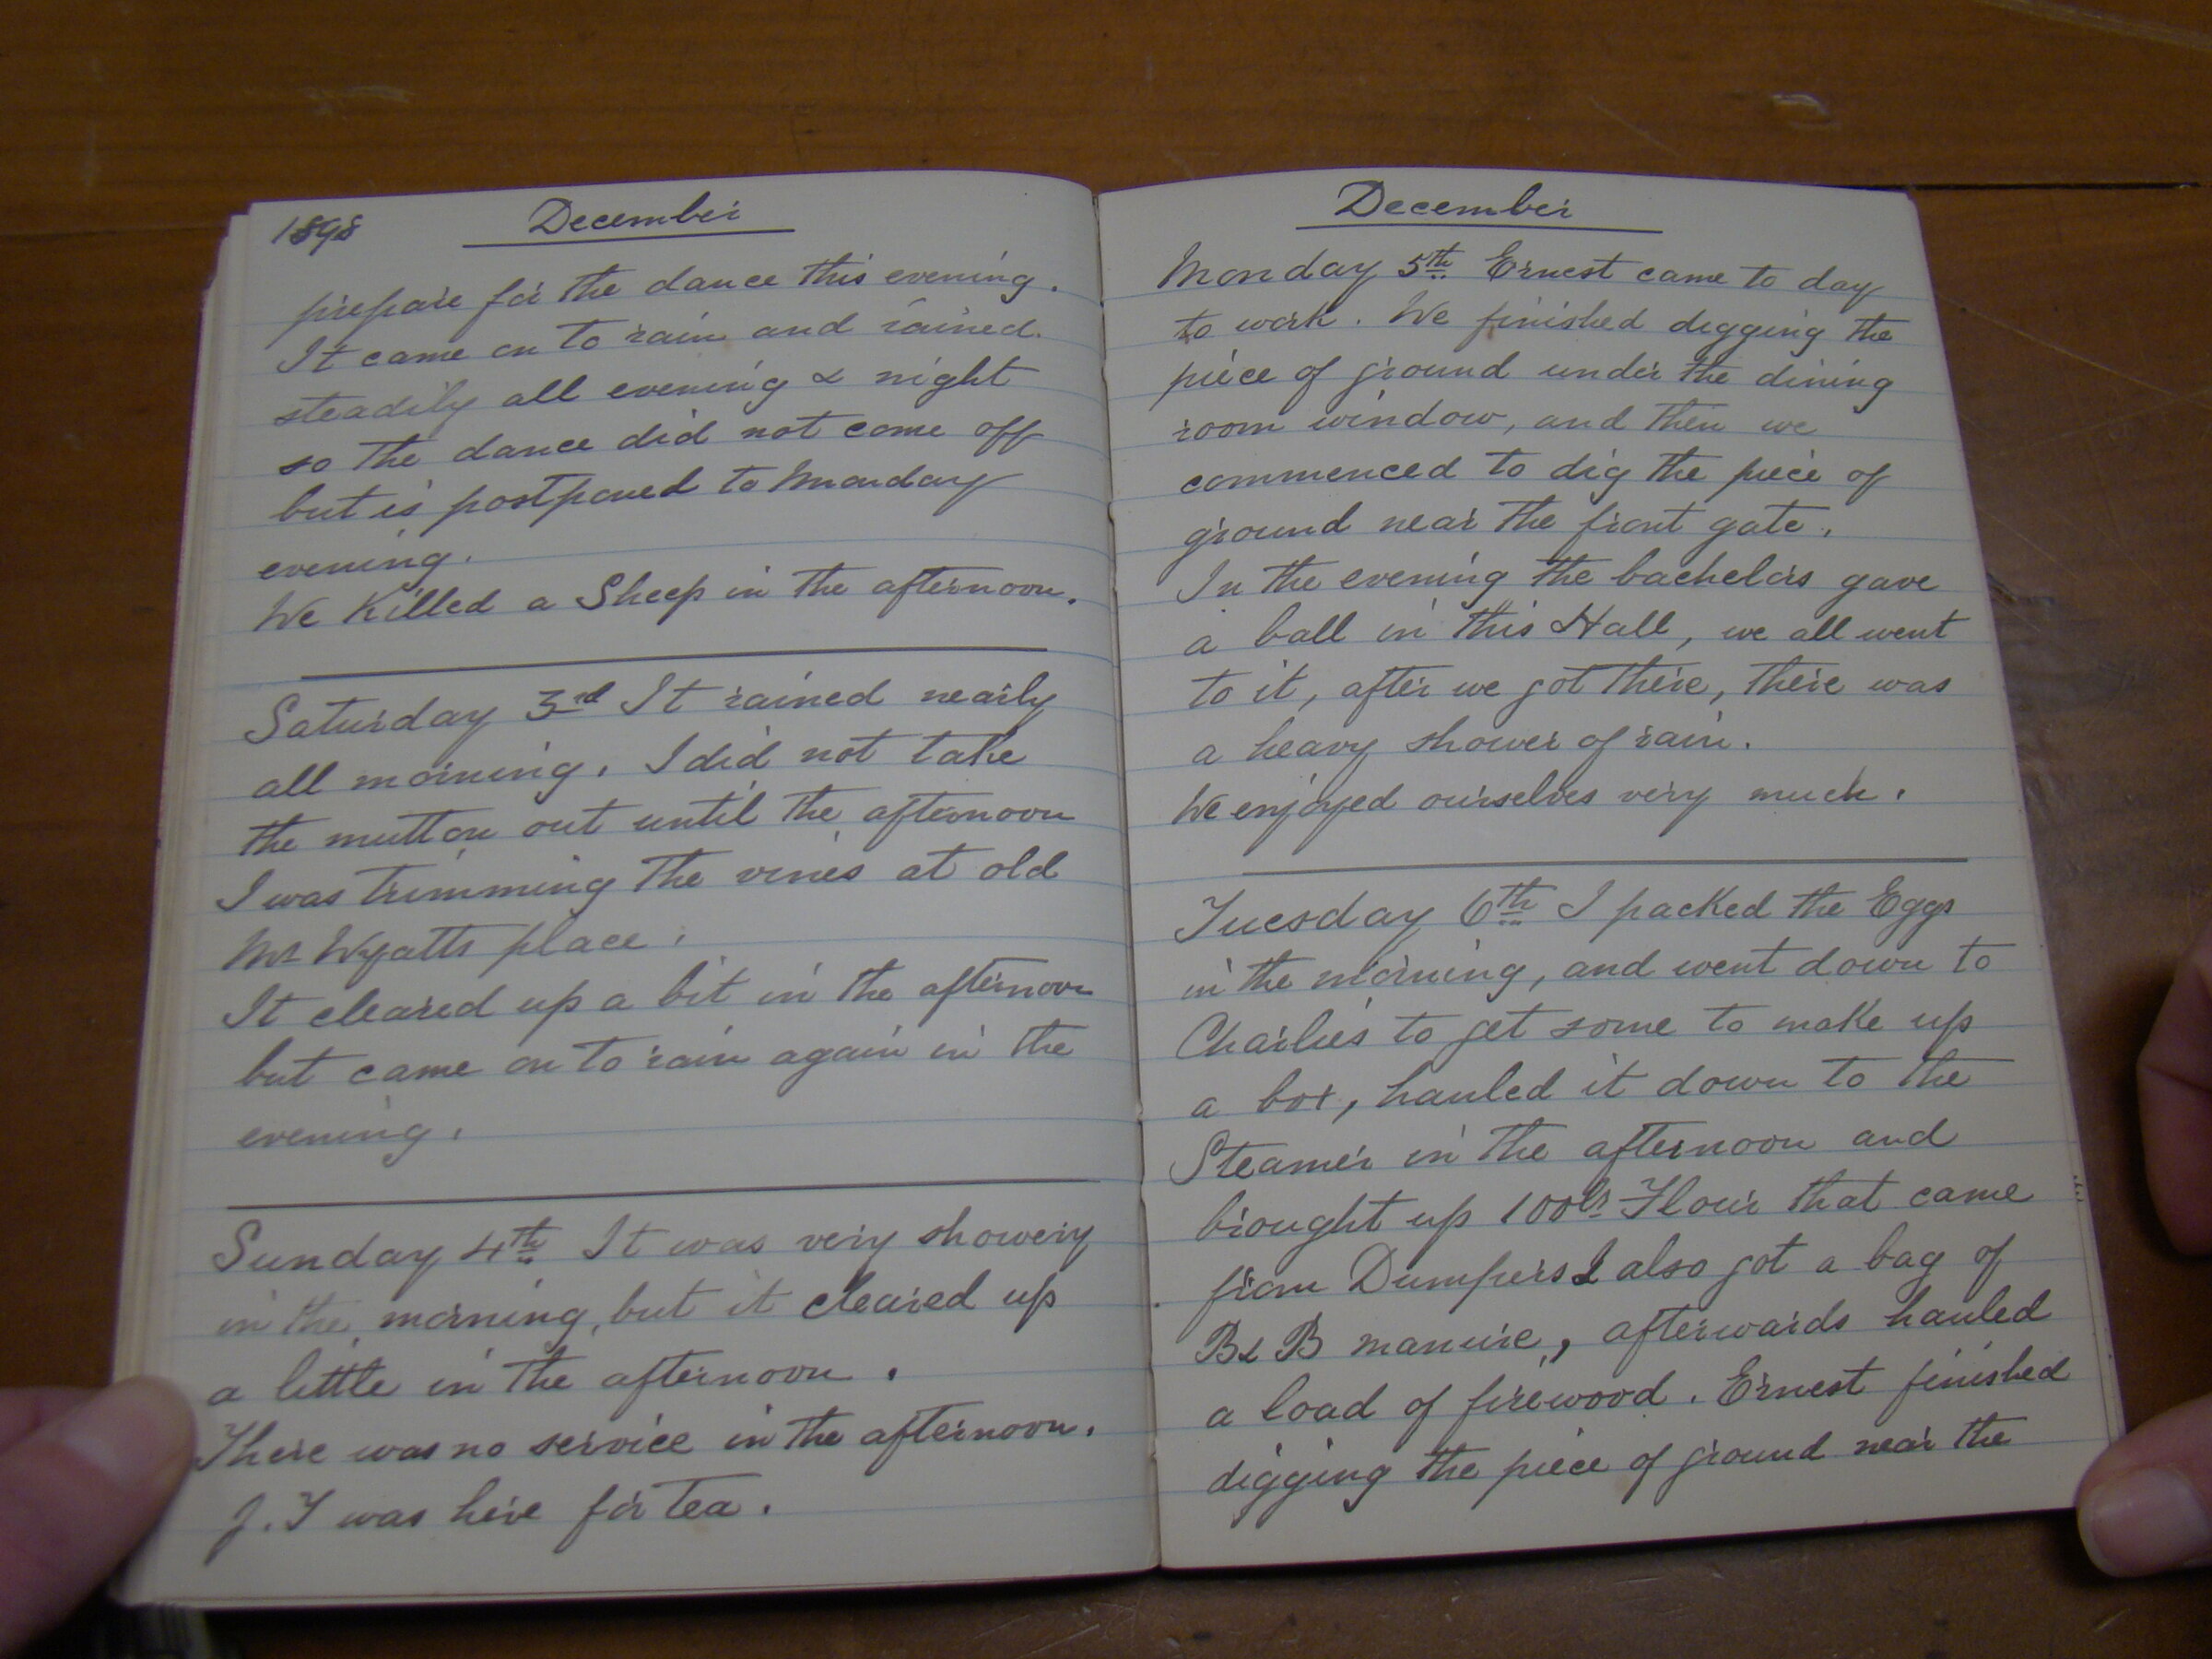 1898 December
prepare for the dance this evening.
It came on to rain and rained
steadily all evening & night
so the dance did not come off
but is postponed to Monday
evening.
We Killed a Sheep in the afternoon.
Saturday 3rd It rained nearly
all morning. I did not take
the mutton out until the afternoon
I was trimming the vines at old
Mr Wyatts place.
It cleared up a bit in the afternoon
but came on to rain again in the
evening.
Sunday 4th It was very showery
in the morning, but it cleared up
a little in the afternoon.
There was no service in the afternoon.
J.Y was here for tea.
December
Monday 5th Ernest came to day
to work. We finished digging the
piece of ground under the dining
room window, and then we
commenced to dig the piece of
ground near the front gate.
In the evening the bachelors gave
a ball in this Hall, we all went
to it, after we got there, there was
a heavy shower of rain.
We enjoyed ourselves very much.
Tuesday 6th I packed the Eggs
in the morning, and went down to
Charlies to get some to make up
a box, hauled it down to the
Steamer in the afternoon and
brought up 100lb Flour that came
from Dumpers I also got a bag of
B & B manure, afterwards hauled
a load of firewood. Ernest finished
digging the piece of ground near the